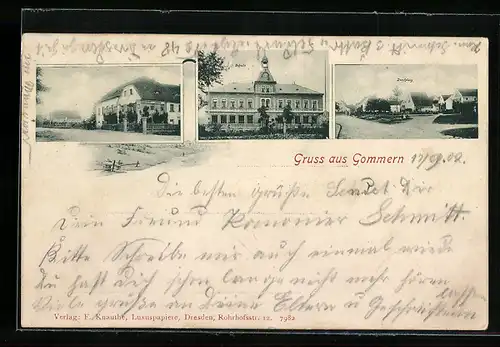 Schule
Dorfplatz
Gruss aus Gommern
Die besten Grüße Sendet Dir
Dein Freund Kanonier Schmitt.
Bitte Schreibe mir auch einmal wieder
Du hast Dich schon lange nicht mehr hören
lassen
Viele Grüße an Deine Eltern u Geschwistern
Verlag: F. Knauthe, Luxuspapiere, Dresden, Rohrhofsstr. 12. 7982